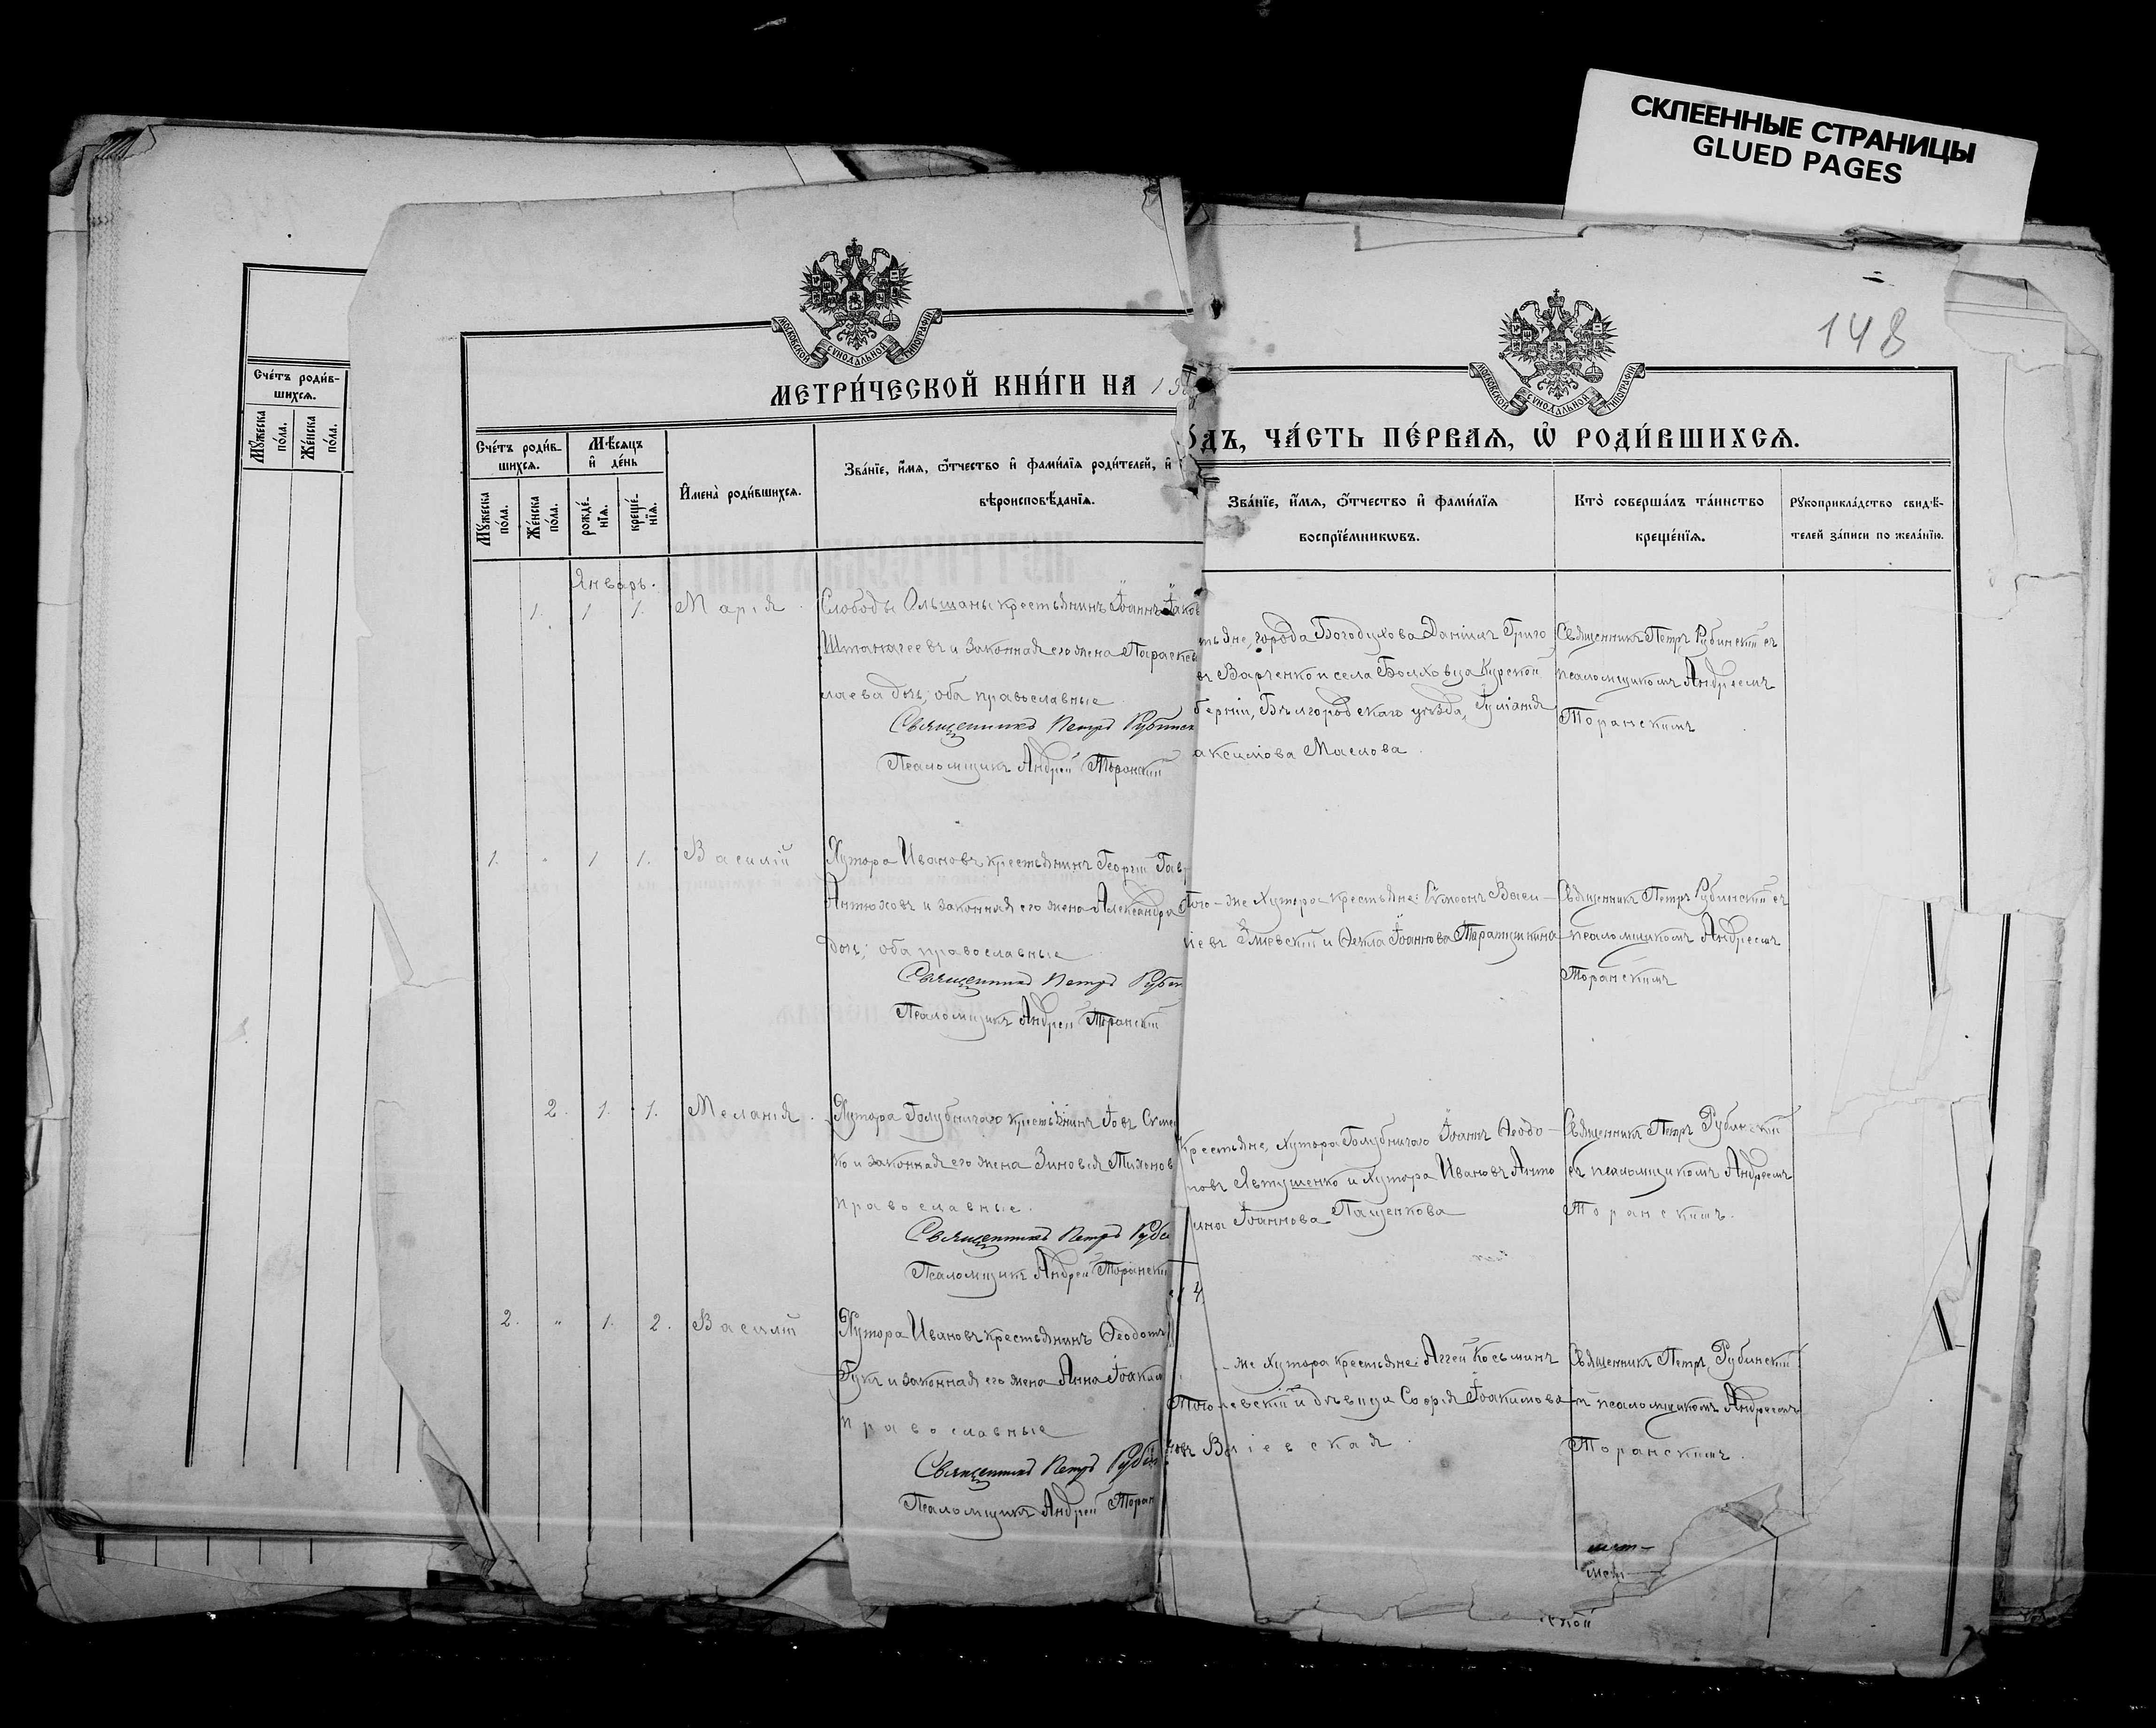 СКЛЕЕННЫЕ СТРАНИЦЫ
GLUED PAGES
148
МОСКОВСКОЙ СУНОДАЛЬНОЙ ТИПОГРАФІИ
МОСКОВСКОЙ СУНОДАЛЬНОЙ ТИПОГРАФІИ
МЕТРИ́ЧЕСКОЙ КНИ́ГИ НА
ДЪ, ЧА́СТЬ ПЕ́РВАѦ, Ѽ РОДИ́ВШИХСѦ.
Сче́тъ роди́в-
шихсѧ.
Мꙋ́жеска по́ла.
Же́нска по́ла.
Сче́тъ роди́в-
шихсѧ.
Мѣ́сѧцъ
и҆ де́нь
Мꙋ́жеска по́ла.
Же́нска по́ла.
рожде́-нїѧ.
креще́-нїѧ.
И҆мена̀ роди́вшихсѧ.
Зва́нїе, и҆́мѧ, ѻ҆́тчество и҆ фами́лїѧ роди́телей, и҆
вѣроисповѣ́данїѧ.
Зва́нїе, и҆́мѧ, ѻ҆́тчество и҆ фами́лїѧ
воспрїе́мникѡвъ.
Кто̀ соверша́лъ та́инство
креще́нїѧ.
Рꙋкоприкла́дство свидѣ́-
телей за́писи по жела́нїю.
Январь.
1. 1. 1. Марія.
Слободы Ольшаны крестьянинъ Іоаннъ Іаков
и законная его жена Параскев
лаева дочь; оба православные
Священникъ Петръ Рубинск
Псаломщикъ Андрей Торанскій
тьяне, города Богодухова Даніилъ Григо
въ Варченко и села Болховца Курской
берніи, Бѣлгородскаго уѣзда, Іуліанія
аксимова Маслова.
Священникъ Петръ Рубинскій съ
псаломщикомъ Андреемъ
Торанскимъ
1. " 1 1. Василій
Хутора Ивановъ крестьянинъ Георгій Гав
Антюховъ и законная его жена Александра
дочь; оба православные
Священникъ Петръ Руби
Псаломщикъ Андрей Торанскій
Того-же хутора крестьяне: Сѵмеонъ Васи-
іевъ Зміевскій и Ѳекла Іоаннова
Священникъ Петръ Рубинскій съ
псаломщикомъ Андреемъ
Торанскимъ
2. 1. 1. Меланія.
Хутора Голубничаго крестьянинъ Іовъ Сѵмео
ко и законная его жена Зиновія Тихонов
православные.
Священникъ Петръ Руби
Псаломщикъ Андрей Торанскій
Крестьяне, хутора Голубничаго Іоаннъ Ѳеодо-
товъ Явтушенко и хутора Ивановъ Анто
ина Іоаннова Пащенкова
Священникъ Петръ Рубинскій
съ псаломщикомъ Андреемъ
Торанскимъ.
2. " 1. 2. Василій
Хутора Ивановъ крестьянинъ Ѳеодотъ
Гукъ и законная его жена Анна Іоаким
православные
Священникъ Петръ Руби
Псаломщикъ Андрей Торан
4
-же хутора крестьяне: Аггей Косьминъ
левскій и дѣвица Софія Іоакимова
іевская.
Священникъ Петръ Рубинскій
псаломщикомъ Андреемъ
Торанскимъ.
ской